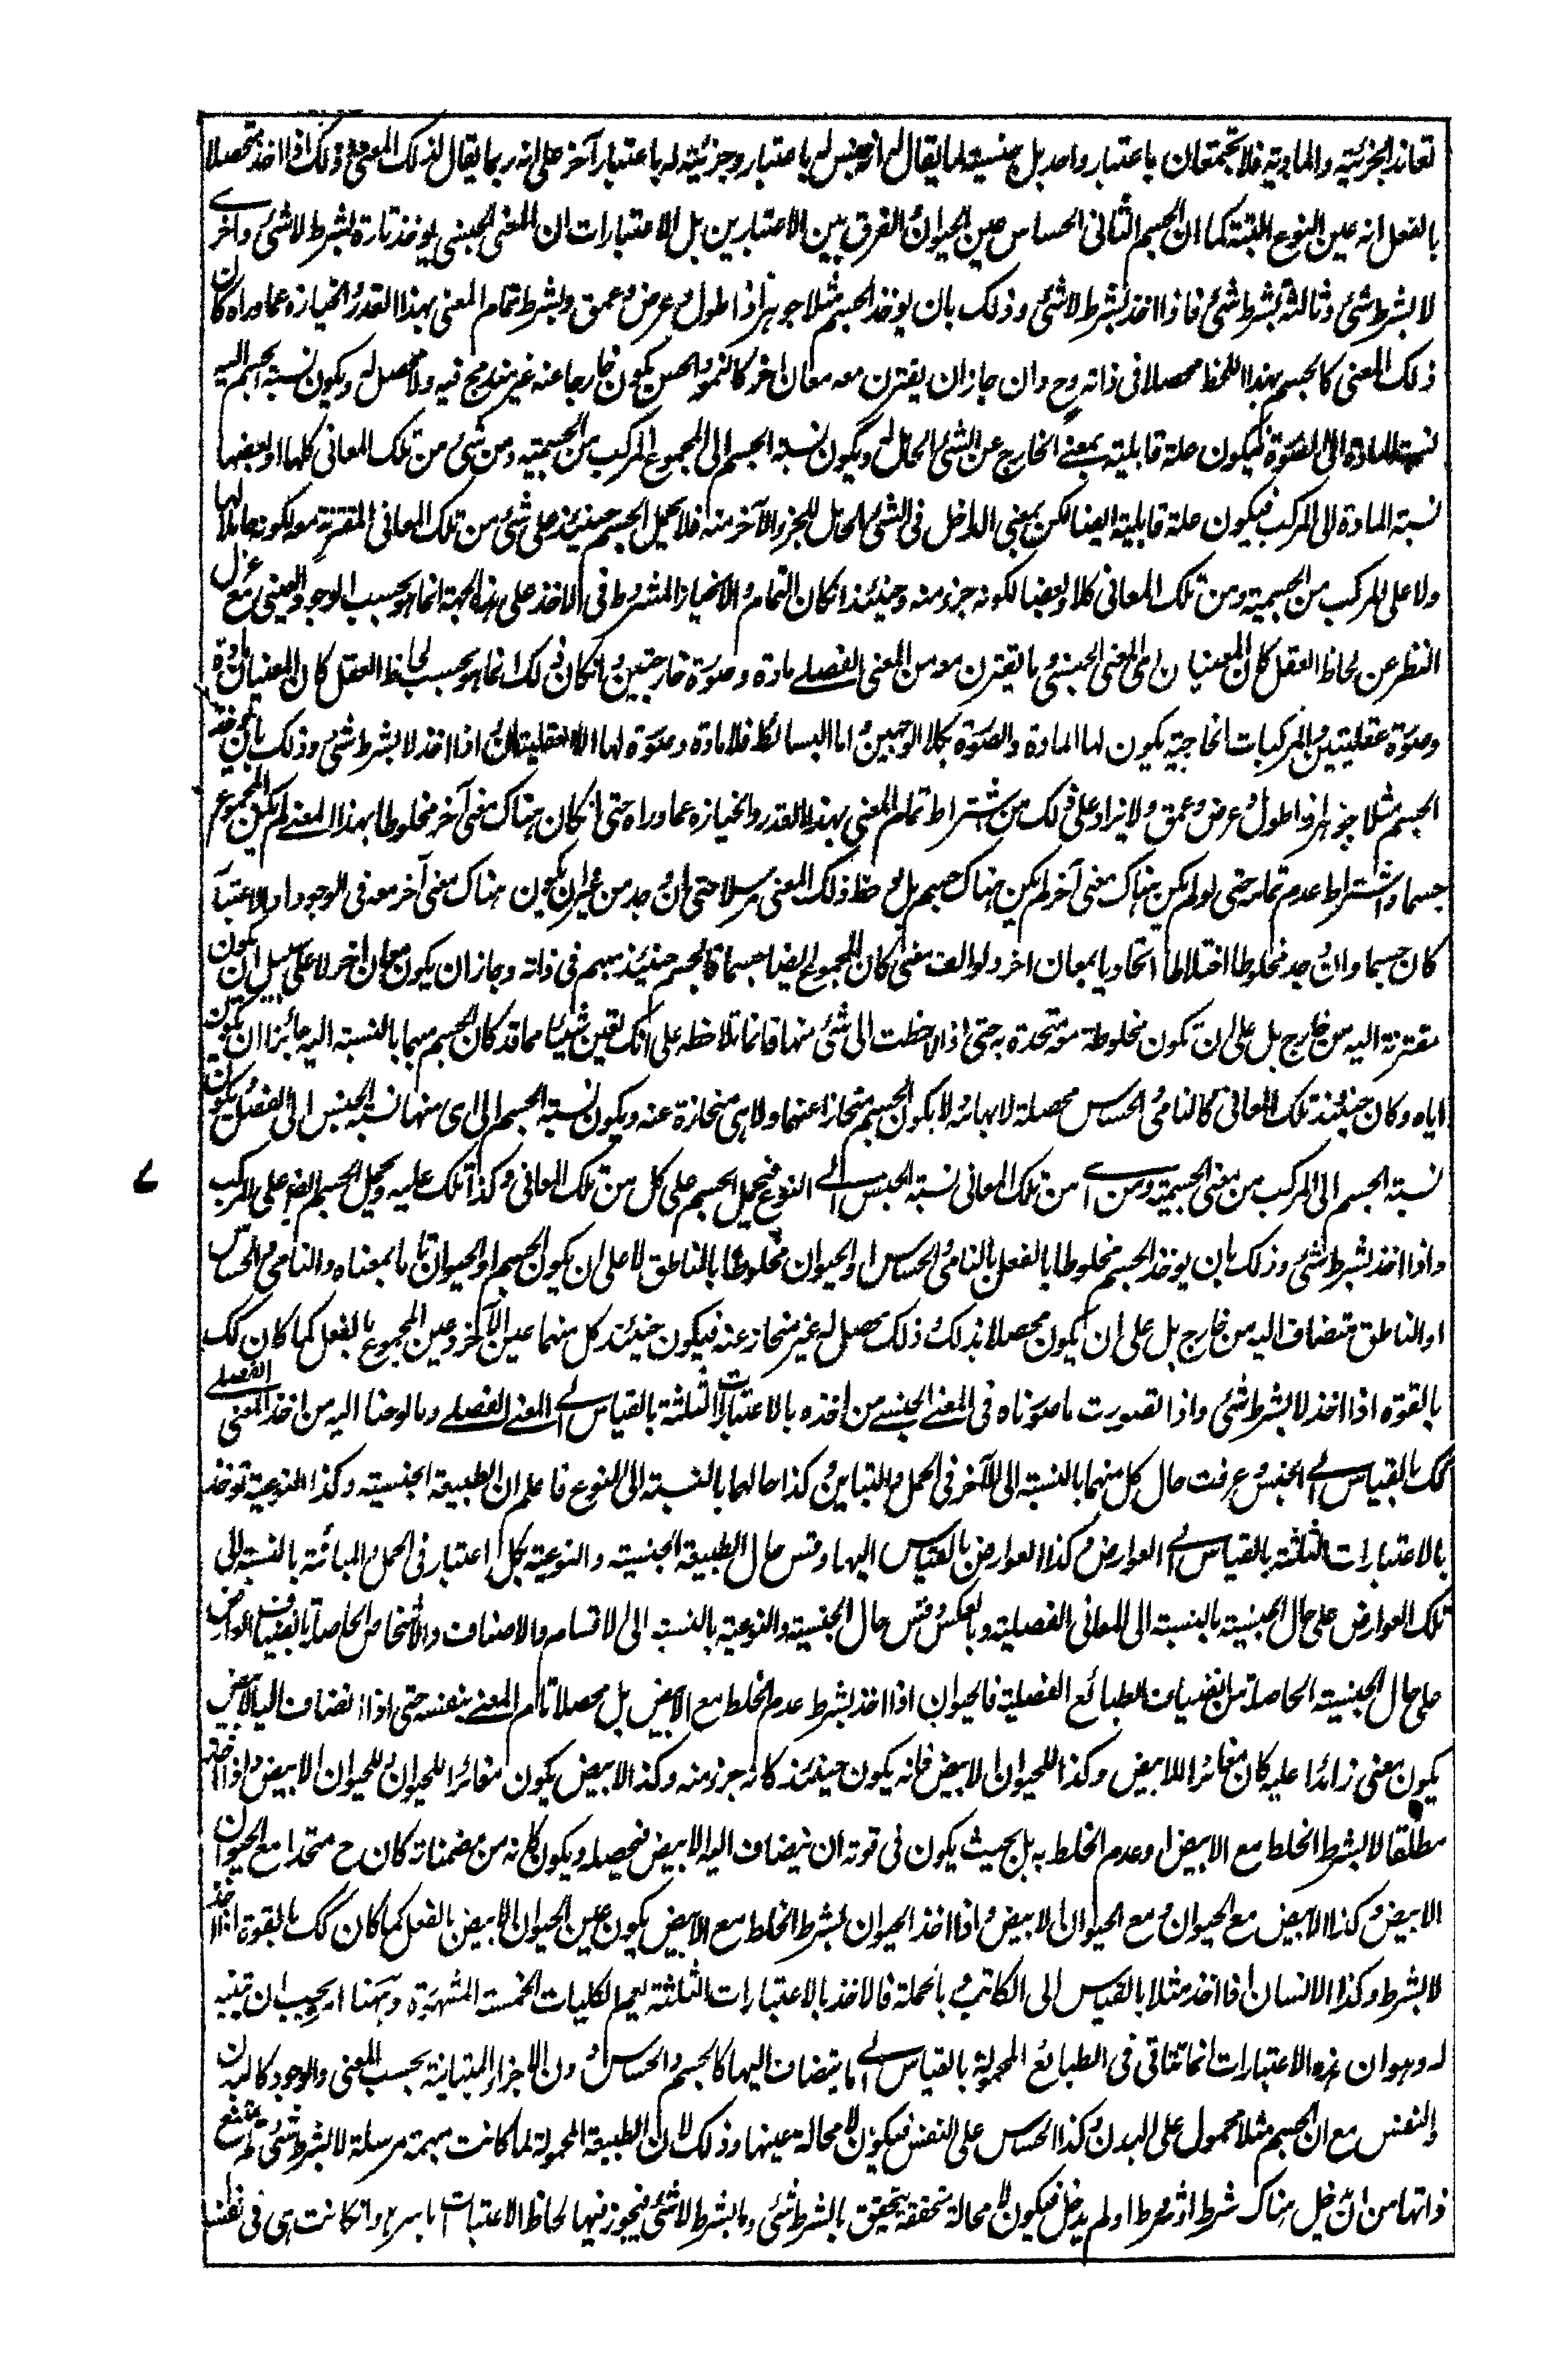 تعاند الجزئية والمادية فلا تجتمعان باعتبار واحد بل جنسيته لما يقال له انه جنس له باعتبار وجزئيته له باعتبار آخر على انه ربما يقال لذلك المعنى وذلك اذا اخذ متحصلا
بالفعل انه عين النوع البتة كما ان الجسم الثانى الحساس عين الحيوان والفرق بين الاعتبارين بل الاعتبارات ان المعنى الجنسى يوخذ تارة بشرط لا شئ واخرى
لا بشرط شئ وثالثة بشرط شئ فاذا اخذ بشرط لا شئ وذلك بان يوخذ الجسم مثلا جوهرا ذا طول وعرض وعمق وبشرط تمام المعنى بهذا القدر وانحيازه عما وراه كان
ذلك المعنى كالجسم بهذا اللحظ محصلا فى ذاته وح وان جاز ان يقترن معه معان اخر كالنمو والحس يكون خارجا عنه غير مندمج فيه ولا محصل له ويكون نسبة الجسم اليه
نسبة المادة الى الصورة فيكون علة قابلية بمعنى الخارج عن الشئ الحال له ويكون نسبة الجسم الى المجموع المركب من الجسمية ومن شئ من تلك المعانى كلها او بعضها
نسبة المادة الى المركب فيكون علة قابلية ايضا لكن بمعنى الداخل فى الشئ المحل للجزء الآخر منه فلا يحمل الجسم حينئذ على شئ من تلك المعانى المقترنة معه لكونه حاملا لها
ولا على المركب من الجسمية ومن تلك المعانى كلا او بعضا لكونه جزء منه وحينئذ ان كان التمام والانحياز المشروط فى الاخذ على هذه الجهة انما هو بحسب الوجود العينى مع عزل
النظر عن لحاظ العقل كان المعنيان اى المعنى الجنسى وما يقترن معه من المعنى الفصلے مادة وصورة خارجتين وان كان ذلك انما هو بحسب لحاظ العقل كان المعنيان مادة
وصورة عقليتين والمركبات الخارجية يكون لها المادة والصورة بكلا الوجهين اما البسائط فلا مادة وصورة لها الا العقليتان واذا اخذ لا بشرط شئ وذلك بان يوخذ
الجسم مثلا جوهرا ذا طول وعرض وعمق ولا يزاد على ذلك من اشتراط تمام المعنى بهذا القدر وانحيازه عما وراه حتى ان كان هناك معنى آخر مخلوطا بهذا المعنے لم يكن المجموع
جسما واشتراط عدم تمامه حتى لو لم يكن هناك معنى آخر لم يكن هناك جسم بل لوحظ ذلك المعنى مرسلا حتى ان وجد من غير ان يكون هناك معنى آخر معه فى الوجود او الاعتبار
كان جسما وان وجد مخلوطا اختلاطا اتحاديا بمعان اخر ولو الف معنى كان المجموع ايضا جسما فالجسم حينئذ مبهم فى ذاته وجاز ان يكون معه معان اخر لا على سبيل ان يكون
مقترنة اليه من خارج بل على ان تكون مخلوطة معه متحدة به حتى اذا لاحظت الى شئ منها فانما تلاحظه على انك تعين شيئا مما قد كان الجسم مبهما بالنسبة اليه جائزا ان يكون
اياه وكان حينئذ تلك المعانى كالنامى والحساس محصلة لابهامه لا يكون الجسم منحازا عنها ولا هى منحازة عنه ويكون نسبة الجسم الى اى منها نسبة الجنس الى الفصل ويكون
نسبة الجسم الى المركب من معنى الجسمية ومن اى من تلك المعانى نسبة الجنس الے النوع فيحمل الجسم على كل من تلك المعانى وكذا تلك عليه ويحمل الجسم ايضا على المركب
واذا اخذ بشرط شئ وذلك بان يوخذ الجسم مخلوطا بالفعل بالنامى والحساس او الحيوان مخلوطا بالناطق لا على ان يكون الجسم او الحيوان تاما بمعناه والنامى والحساس
او الناطق منضاف اليه من خارج بل على ان يكون محصلا بذلك وذلك محصل له غير منحاز عنه فيكون حينئذ كل منهما عين الآخر وعين المجموع بالفعل كما كان كك
بالقوة اذا اخذ لا بشرط شئ واذا تصورت ما صورناه فى المعنے الجنسے من اخذه بالاعتبارات الثلثة بالقياس الے المعنے الفصلے وما لوحنا اليه من اخذ المعنى الفصلے
كك بالقياس الے الجنس وعرفت حال كل منهما بالنسبة الى الآخر فى الحمل والتباين وكذا حالهما بالنسبة الى النوع فاعلم ان الطبيعة الجنسية وكذا النوعية توخذ
بالاعتبارات الثلثة بالقياس الے العوارض وكذا العوارض بالقياس اليها وقس حال الطبيعة الجنسية والنوعية بكل اعتبار فى الحمل والمباينة بالنسبة الى
تلك العوارض على حال الجنسية بالنسبة الى المعانى الفصلية وبالعكس وقس حال الجنسية والنوعية بالنسبة الى الاقسام والاصناف والاشخاص الحاصلة بانضياف العوارض
على حال الجنسية الحاصلة من انضياف الطبائع الفصلية فالحيوان اذا اخذ بشرط عدم الخلط مع الابيض بل محصلا تام المعنے بنفسه حتى اذا انضاف اليه الابيض
يكون معنى زائدا عليه كان مغائرا للابيض وكذا للحيوان الابيض فانه يكون حينئذ كانه جزء منه وكذا الابيض يكون مغائرا للحيوان وللحيوان الابيض واذا اخذ
مطلقا لا بشرط الخلط مع الابيض او عدم الخلط به بل بحيث يكون فى قوته ان ينضاف اليه الابيض فيحصله ويكون كانه من مضمناته كان ح متحدا مع الحيوان
الابيض وكذا الابيض مع الحيوان ومع الحيوان الابيض واذا اخذ الحيوان بشرط الخلط مع الابيض يكون عين الحيوان الابيض بالفعل كما كان كك بالقوة اذا اخذ
لا بشرط وكذا الانسان اذا اخذ مثلا بالقياس الى الكاتب وبالجملة فالاخذ بالاعتبارات الثلثة يعم الكليات الخمسة المشهورة وههنا امر يجب ان يتنبه
له وهو ان هذه الاعتبارات انما تتاتى فى الطبائع المحمولة بالقياس الے ما ينضاف اليها كالجسم والحساس دون الاجزاء المتباينة بحسب المعنى والوجود كالبدن
والنفس مع ان الجسم مثلا محمول على البدن وكذا الحساس على النفس فيكون لا محالة عينها وذلك لان الطبيعة المحمولة لما كانت مبهمة مرسلة لا بشرط شئ لم يمتنع
ذاتها من ان دخل هناك شرط اثر شرط او لم يدخل فيكون لا محالة متحققة بتحقق بالشرط شئ وبالشرط لا شئ فيجوز فيها لحاظ الاعتبارات باسرها وان كانت هى فى نفسها
۷